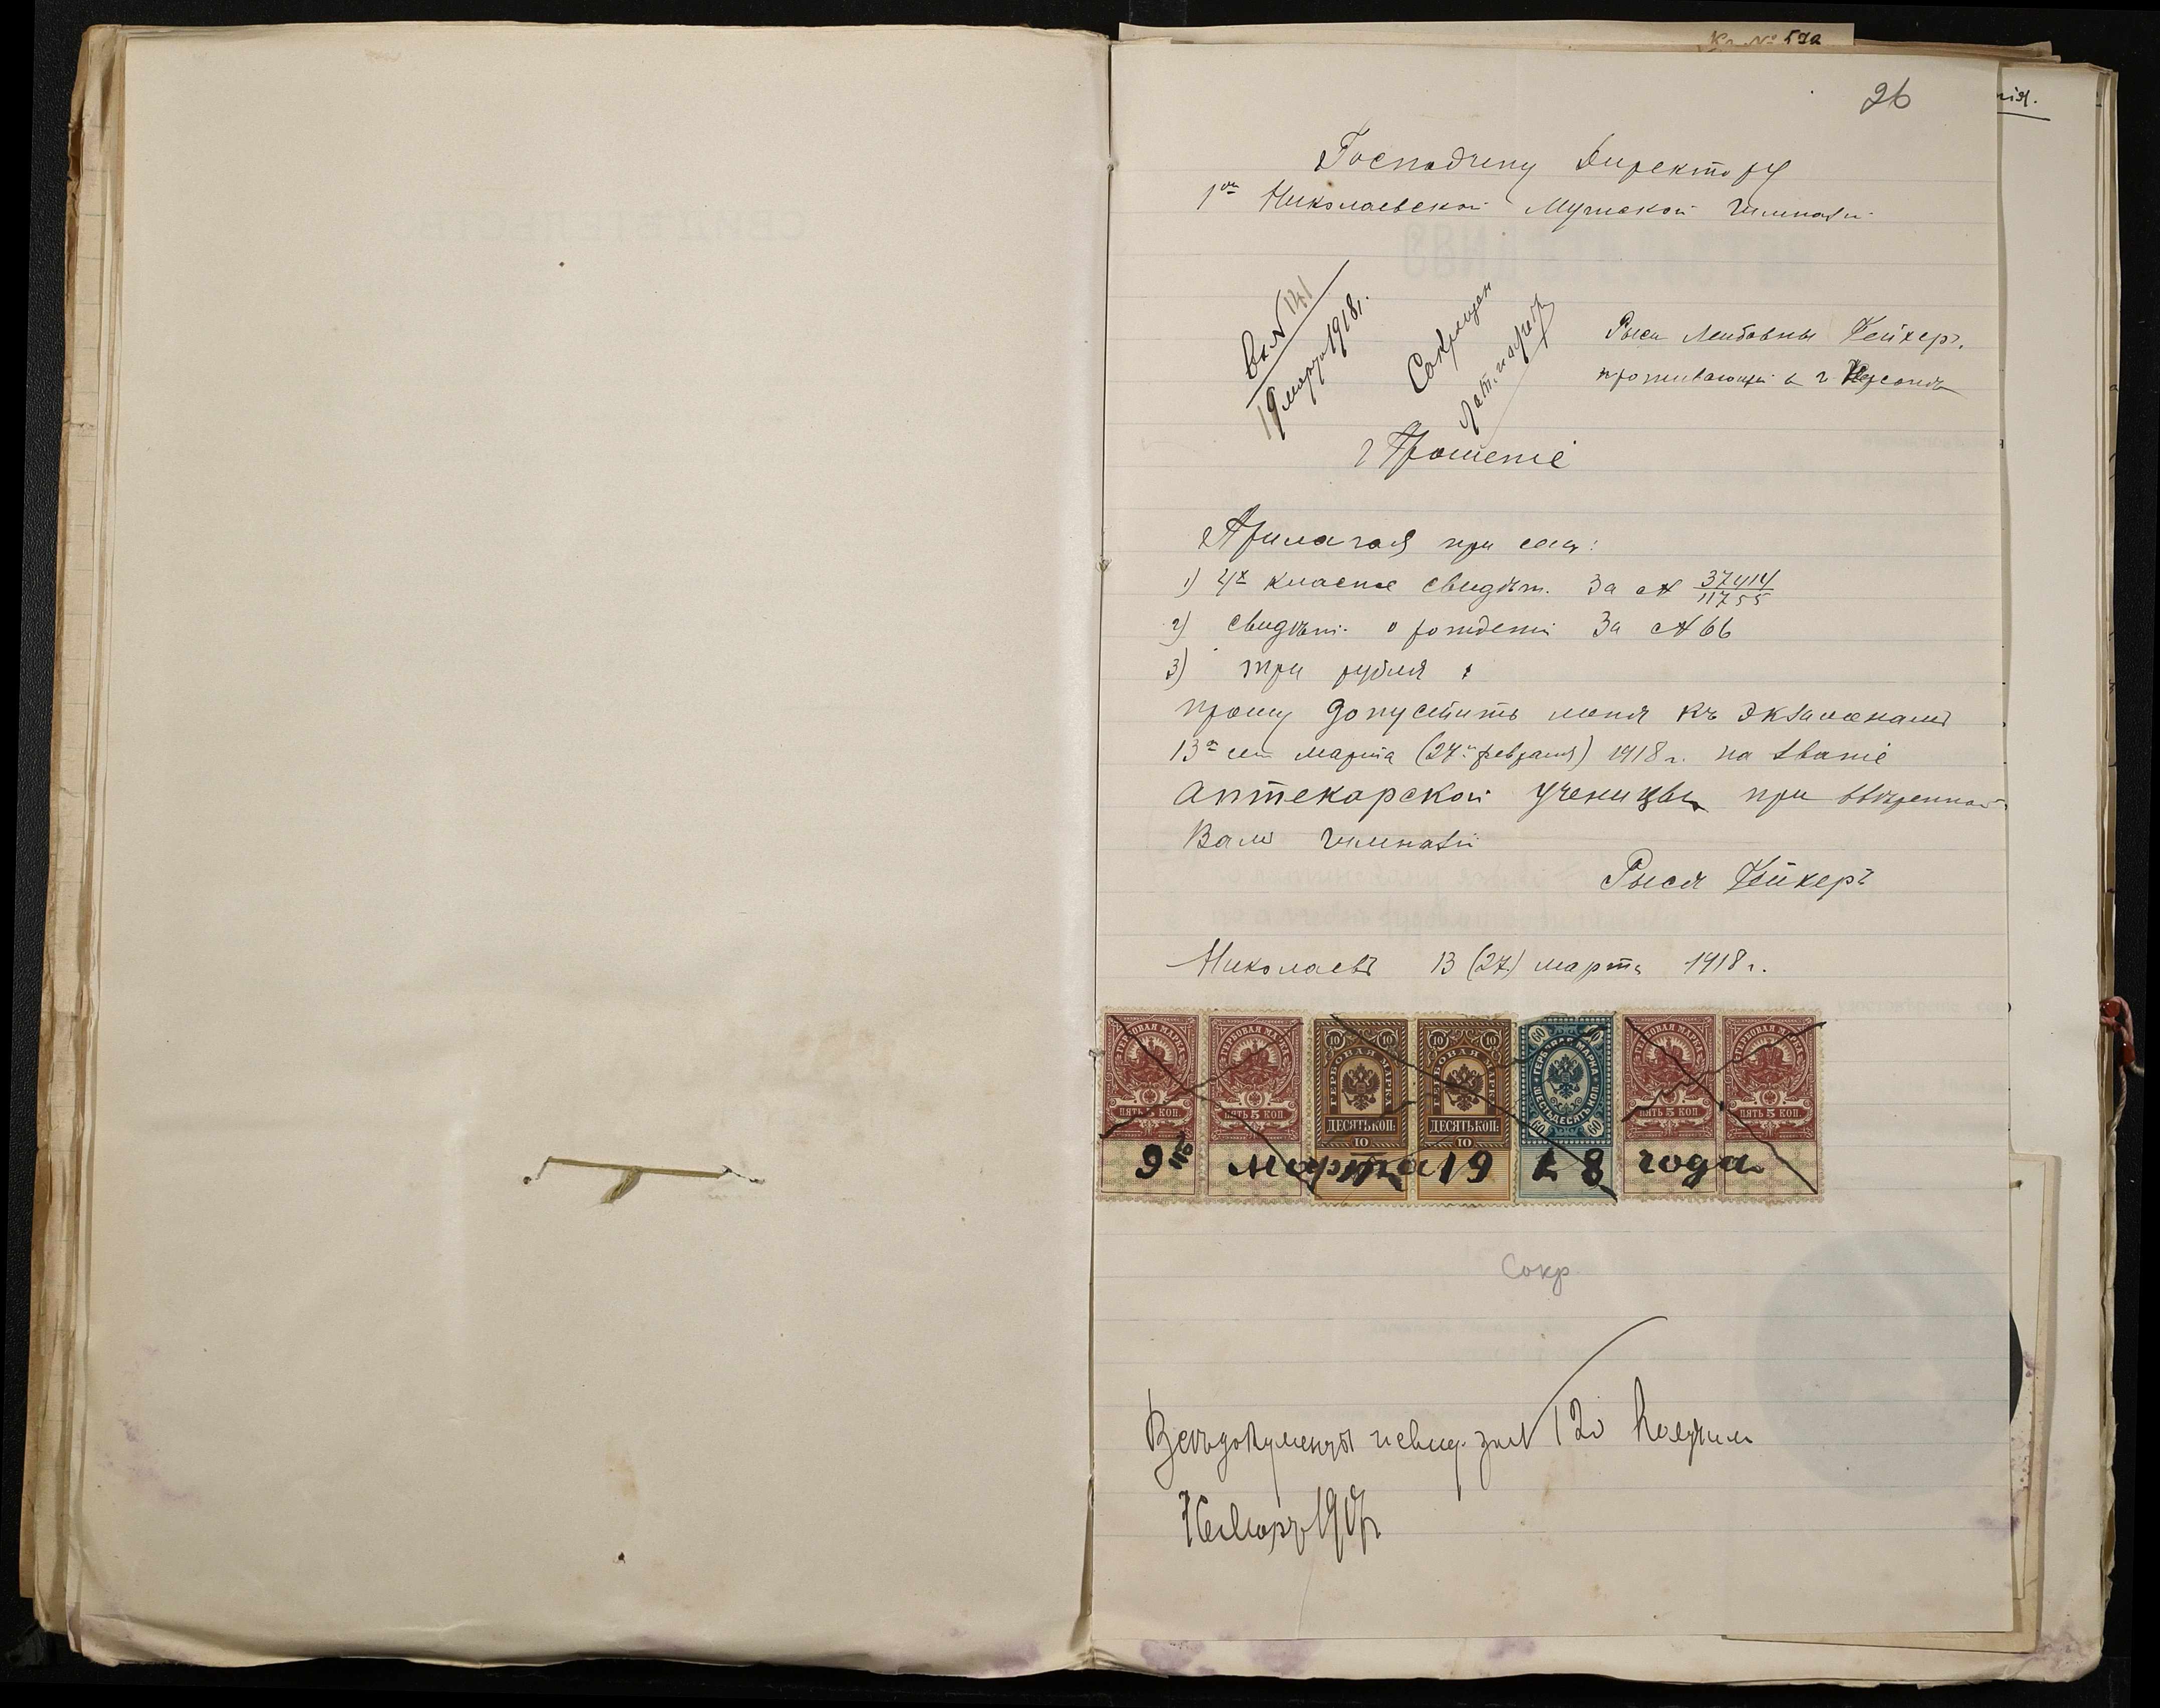 Кг. № 592
26
нія.
Господину Директору
1ой Николаевской Мужской Гимназіи
Вх. № 141
19 марта 1918 г.
Сокращен
Рыси Лейбовны Фейкеръ,
проживающей в г. Херсонѣ
Прошеніе
Прилагая при семъ:
1) 4х класное свидѣт. за № 37414/11755
2) свидѣт. о рожденіи за № 66
3) три рубля
прошу допустить меня къ экзаменамъ
13го сего марта (27го февраля) 1918 г. на званіе
аптекарской ученицы при ввѣренной
Вамъ гимназіи
Рыся Фейкеръ
Николаевъ 13 (27) марта 1918 г.
ГЕРБОВАЯ МАРКА ПЯТЬ 5 КОП.
ГЕРБОВАЯ МАРКА ПЯТЬ 5 КОП.
10 10 ГЕРБОВАЯ МАРКА ДЕСЯТЬ КОП. 10
10 10 ГЕРБОВАЯ МАРКА ДЕСЯТЬ КОП. 10
60 60 ГЕРБОВАЯ МАРКА ШЕСТЬДЕСЯТЪ КОП. 60 60
ГЕРБОВАЯ МАРКА ПЯТЬ 5 КОП.
ГЕРБОВАЯ МАРКА ПЯТЬ 5 КОП.
9го марта 1918 года
Сокр
документы и свид. за № 120